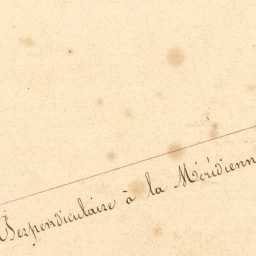 Perpendiculaire à la Méridienn